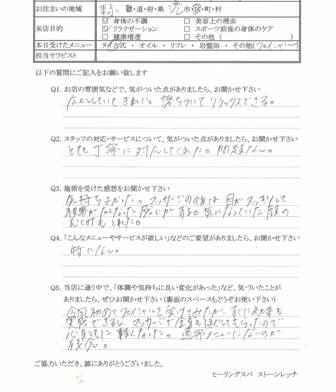 お住まいの地域 都・道・府・県 港 市・区・町・村
来店目的 ☑ 身体の不調 □ 美容上の理由
☑ リラクゼーション □ スポーツ前後の身体のケア
□ 健康増進 □ その他（ ）
本日受けたメニュー タイ古式・オイル・リフレ・岩盤浴・その他（フェイシャル）
担当セラピスト
以下の質問にご記入をお願い致します
Q1. お店の雰囲気などで、気がついた点がありましたら、お聞かせ下さい
広々としていてきれい。落ちついてリラックスできる。
Q2. スタッフの対応・サービスについて、気がついた点がありましたら、お聞かせ下さい
とても丁寧に対応してくれた。問題ない。
Q3. 施術を受けた感想をお聞かせ下さい
気持ちよかった。マッサージの後は目がスッキリして
視界が
がする。気になっていた顔の
むくみもとれた。
Q4. 「こんなメニューやサービスが欲しい」などのご要望がありましたら、お聞かせ下さい
特になし。
Q5. 当店に通う中で、「体調や気持ちに良い変化があった」など、気づいたことが
ありましたら、ぜひお聞かせ下さい（裏面のスペースもどうぞお使い下さい）
今回初めてフェイシャルを受けてみたが、すぐに効果を
実感できるし、マッサージで全身もほぐしてもらったので
心身ともに軽くなった。
残念。
ご協力いただき、誠にありがとうございました。
ヒーリングスパ ストーンレッチ